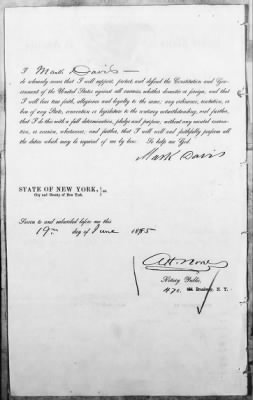 I Mark Davis
do solemnly swear that I will support, protect and defend the Constitution and Gov-
ernment of the United States against all enemies, whether domestic or foreign, and that
I will bear true faith, allegiance and loyalty to the same, any ordinance, resolution, or
law of any State, convention or legislature to the contrary notwithstanding, and further,
that I do this with a full determination, pledge and purpose, without any mental reserva-
tion, or evasion, whatsoever, and further, that I will well and faithfully perform all
the duties which may be required of me by law. So help me God.
Mark Davis
STATE OF NEW YORK, } ss.
City and County of New York.
Sworn to and subscribed before me this
19th day of June 1885
Notary Public,
Broadway, N. Y.